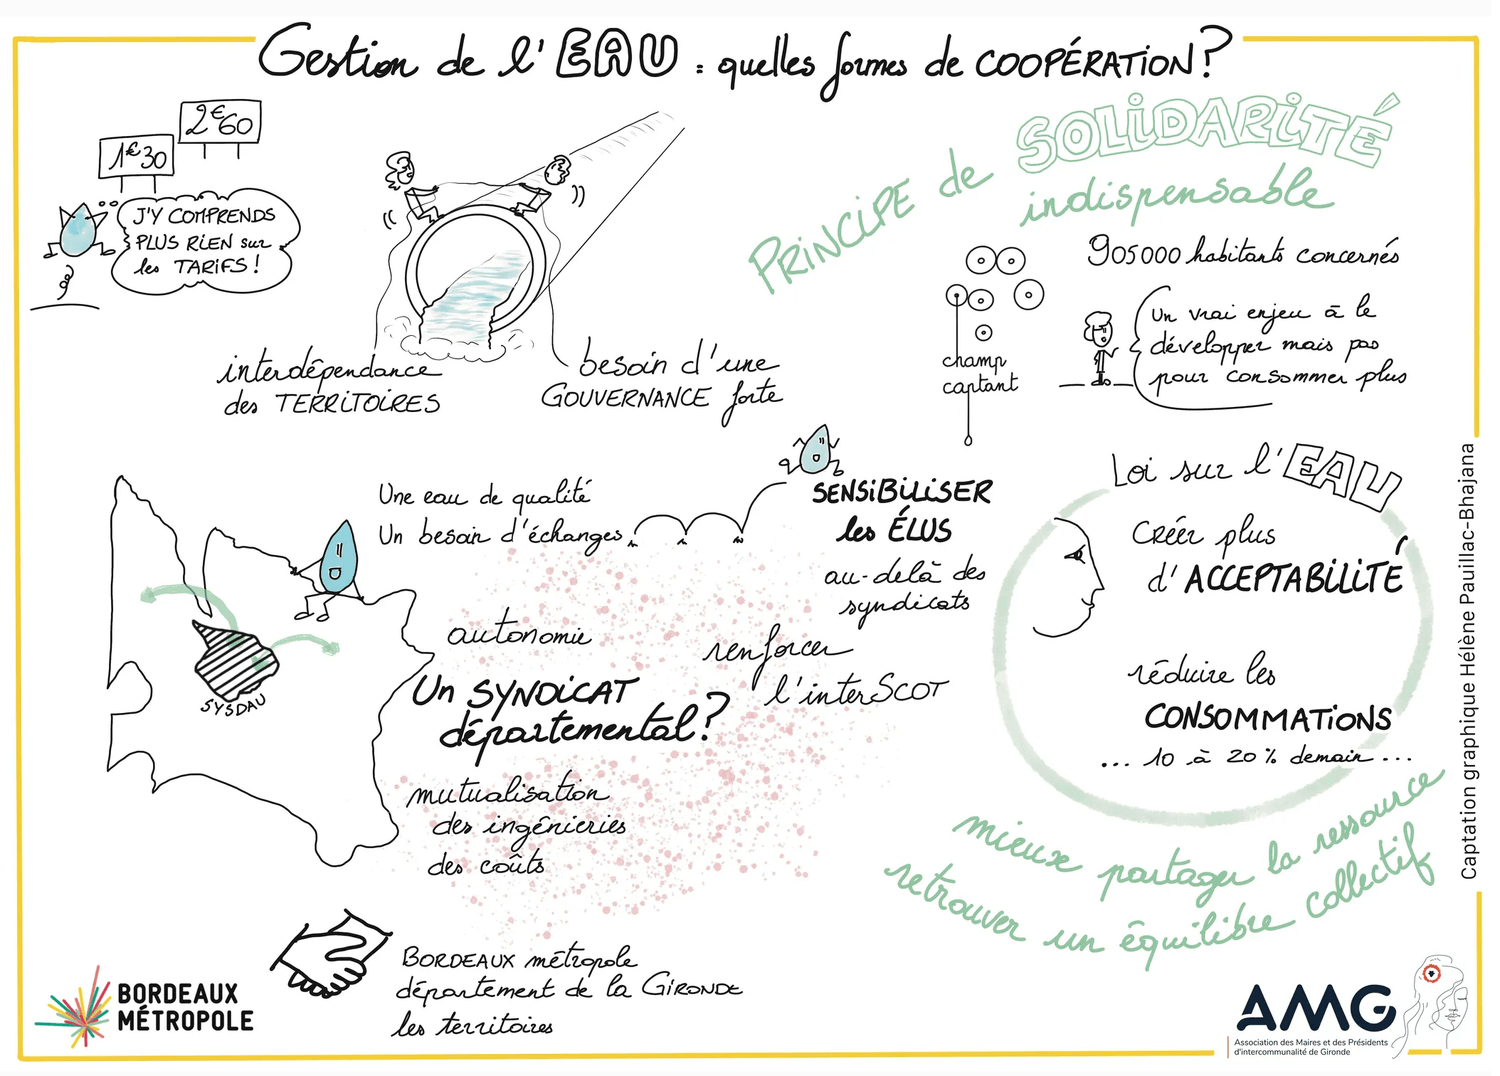 Gestion de l'EAU : quelles formes de COOPÉRATION ?
2€60
1€30
J'Y COMPRENDS
PLUS RIEN sur
les TARIFS !
interdépendance
des TERRITOIRES
besoin d'une
GOUVERNANCE forte
PRINCIPE de SOLIDARITÉ
indispensable
905000 habitants concernés
champ
captant
Un vrai enjeu à le
développer mais pas
pour consommer plus
Une eau de qualité
Un besoin d'échanges
SENSIBILISER
les ÉLUS
au-delà des
syndicats
SYSDAU
autonomie
renforcer
l'interSCOT
Un SYNDICAT
départemental ?
mutualisation
des ingénieries
des coûts
Loi sur l'EAU
Créer plus
d'ACCEPTABILITÉ
réduire les
CONSOMMATIONS
... 10 à 20 % demain ...
mieux partager la ressource
retrouver un équilibre collectif
BORDEAUX métropole
département de la GIRONDE
les territoires
BORDEAUX
MÉTROPOLE
AMG
Association des Maires et des Présidents
d'intercommunalité de Gironde
Captation graphique Hélène Pauillac-Bhajana